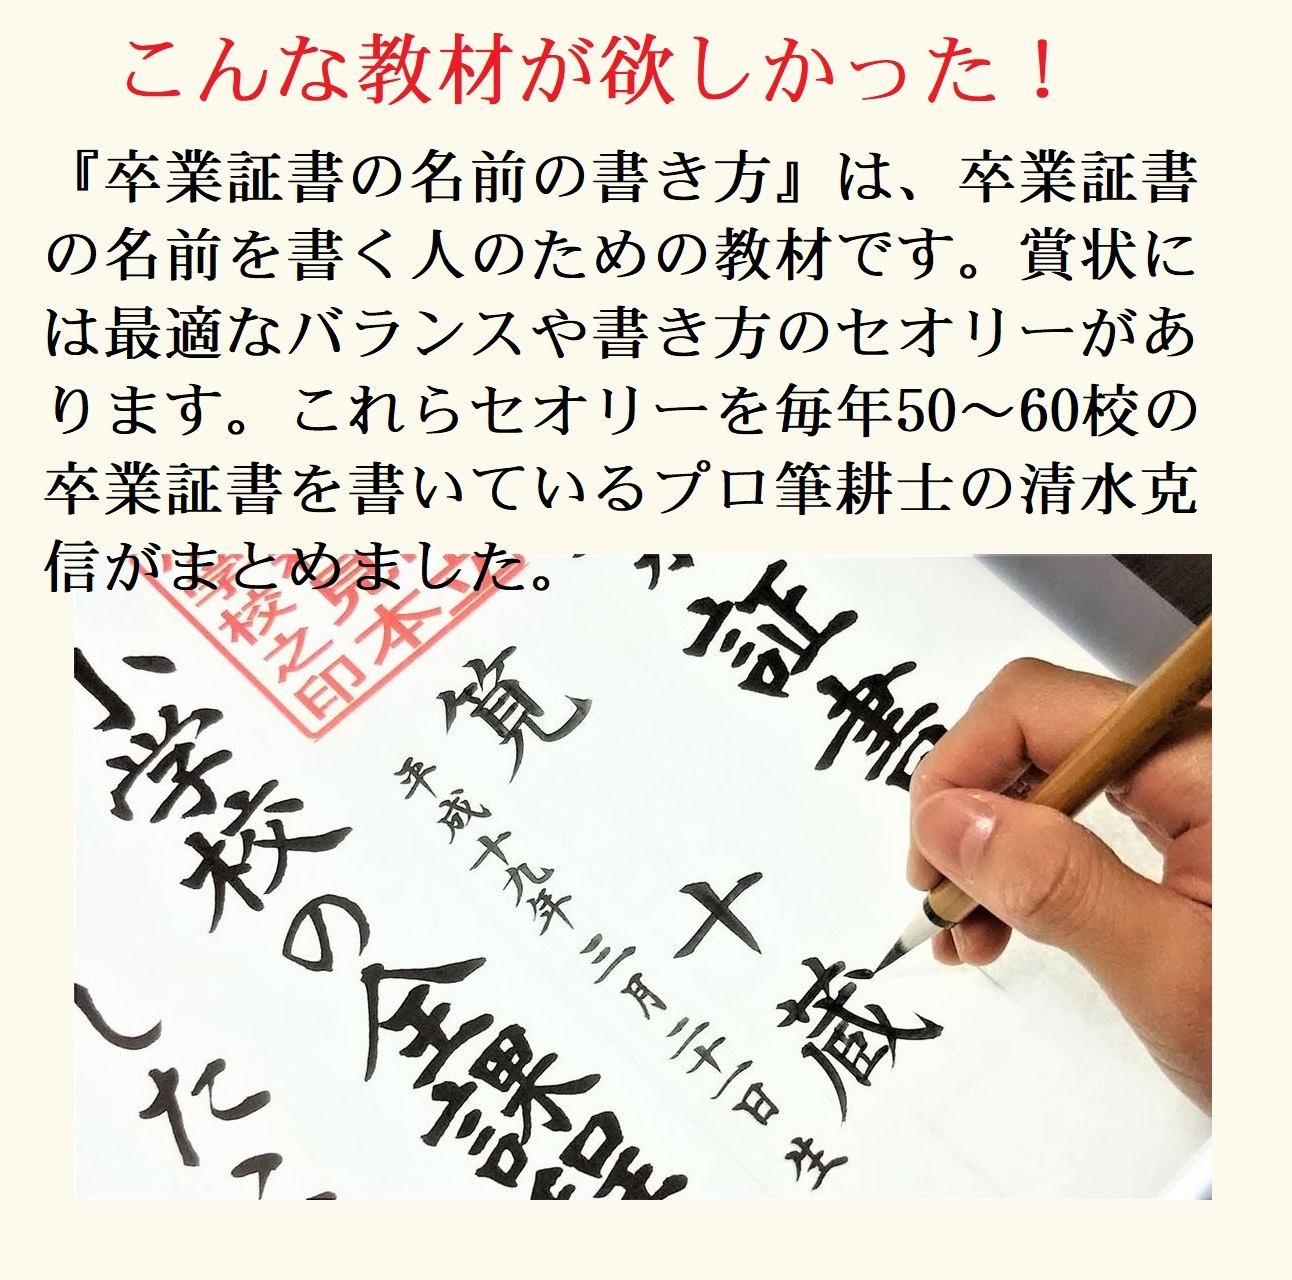 こんな教材が欲しかった！
『卒業証書の名前の書き方』は、卒業証書
の名前を書く人のための教材です。賞状に
は最適なバランスや書き方のセオリーがあ
ります。これらセオリーを毎年50〜60校の
卒業証書を書いているプロ筆耕士の清水克
信がまとめました。
証書
十蔵
筧
平成十九年三月二十一日生
本
学校之印
小学校の全課程
した